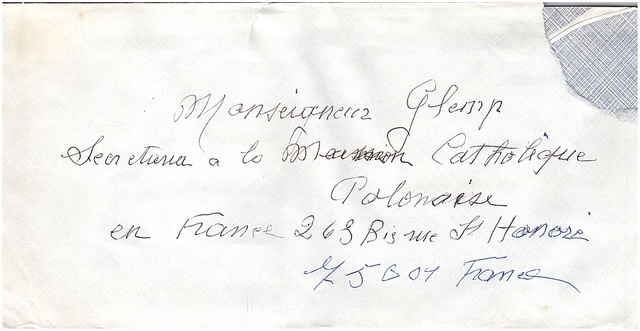 Monseigneur Glemp
Secretuner a la Mission Catholique
Polonaise
en France 263 Bis rue St Honoré
75001 France